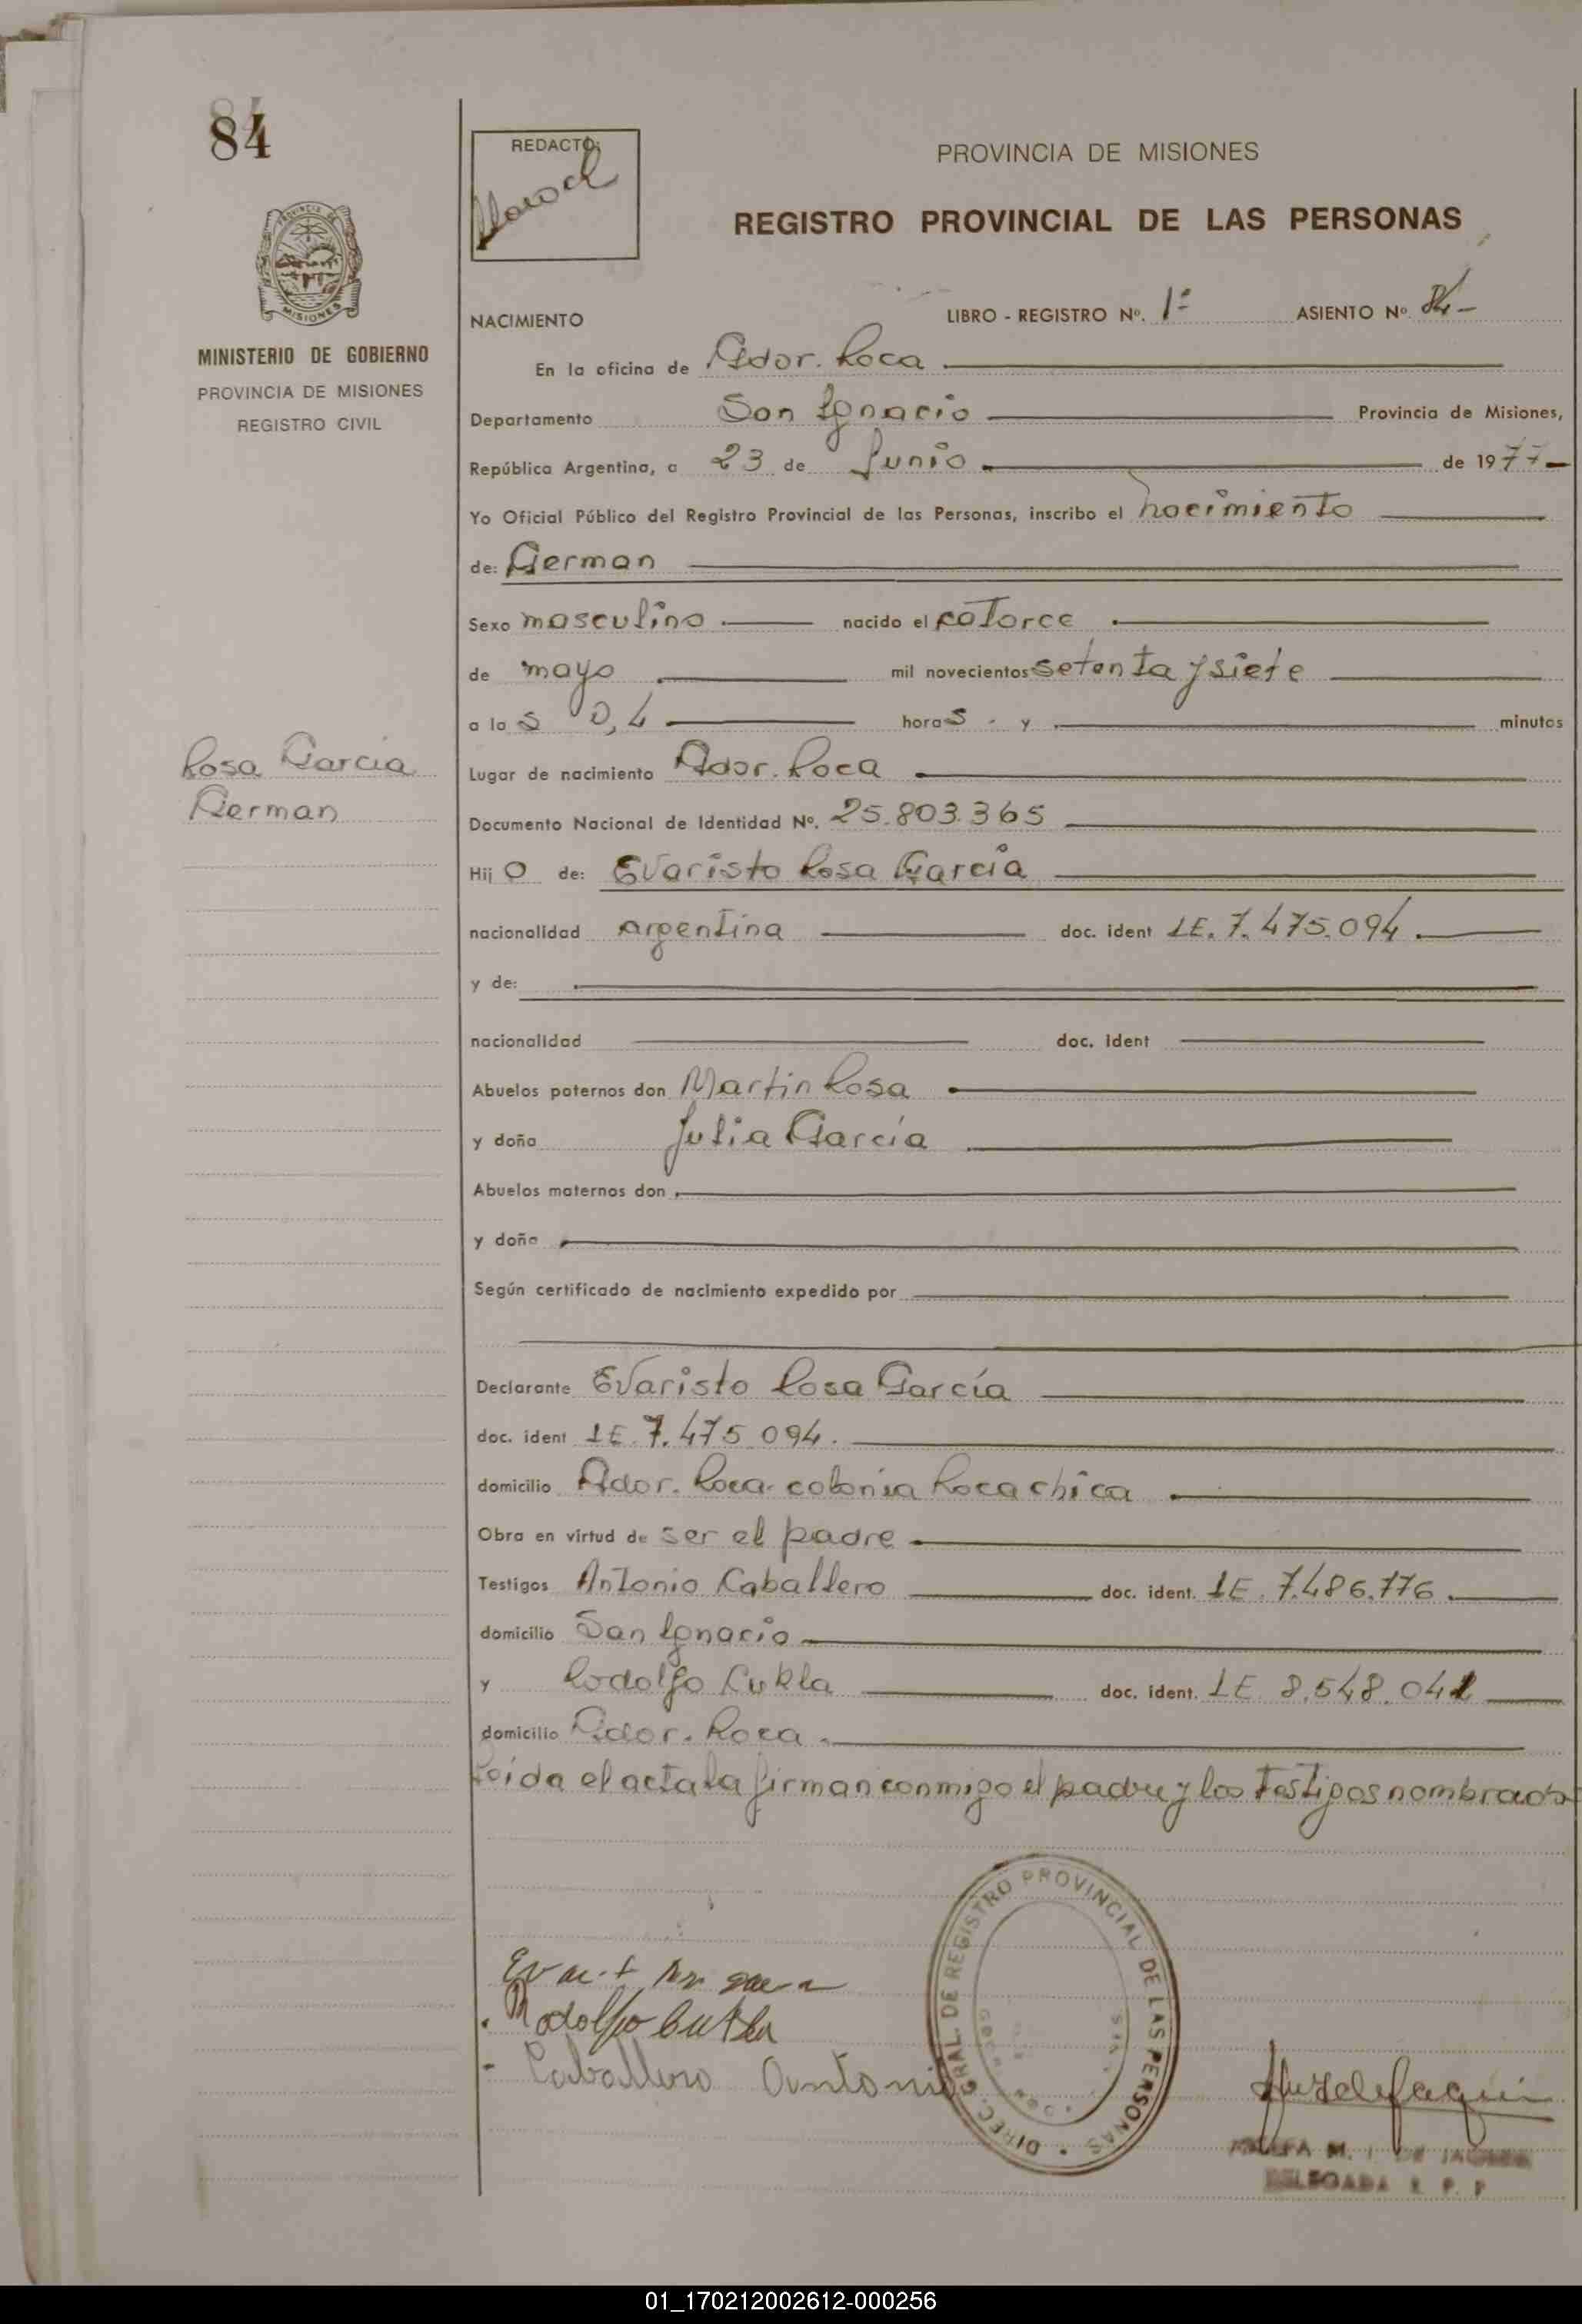 84
REDACTO:
PROVINCIA DE MISIONES
REGISTRO PROVINCIAL DE LAS PERSONAS
MISIONES
MINISTERIO DE GOBIERNO
PROVINCIA DE MISIONES
REGISTRO CIVIL
NACIMIENTO LIBRO - REGISTRO Nº. 1º ASIENTO Nº 84-
En la oficina de Gdor. Roca
Departamento San Ignacio Provincia de Misiones,
República Argentina, a 23 de Junio de 1977-
Yo Oficial Público del Registro Provincial de las Personas, inscribo el nacimiento
de: German
Sexo masculino nacido el catorce
de mayo mil novecientos setenta y siete
a las 0,4 horas . y minutos
Rosa García
German
Lugar de nacimiento Gdor. Roca
Documento Nacional de Identidad Nº. 25.803.365
Hijo de: Evaristo Rosa García
nacionalidad argentina doc. ident LE. 7.475.094.
y de:
nacionalidad doc. ident
Abuelos paternos don Martin Rosa
y doña Julia García
Abuelos maternos don
y doña
Según certificado de nacimiento expedido por
Declarante Evaristo Rosa García
doc. ident LE 7.475.094.
domicilio Gdor. Roca colonia Roca chica
Obra en virtud de ser el padre
Testigos Antonio Caballero doc. ident. LE. 7.486.776.
domicilio San Ignacio
y Rodolfo Cukla doc. ident. LE 8.548.041
domicilio Gdor. Roca.
Leída el acta la firman conmigo el padre y los testigos nombrados
Rodolfo Cukla
Caballero Antonio
DIREC. GRAL. DE REGISTRO PROVINCIAL DE LAS PERSONAS
DELEGADA R. P. P
01_170212002612-000256